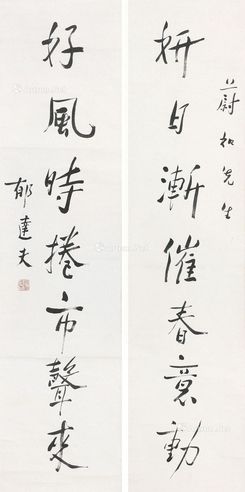 蔚先生
妍日漸催春意動
好風時捲市聲來
郁達夫